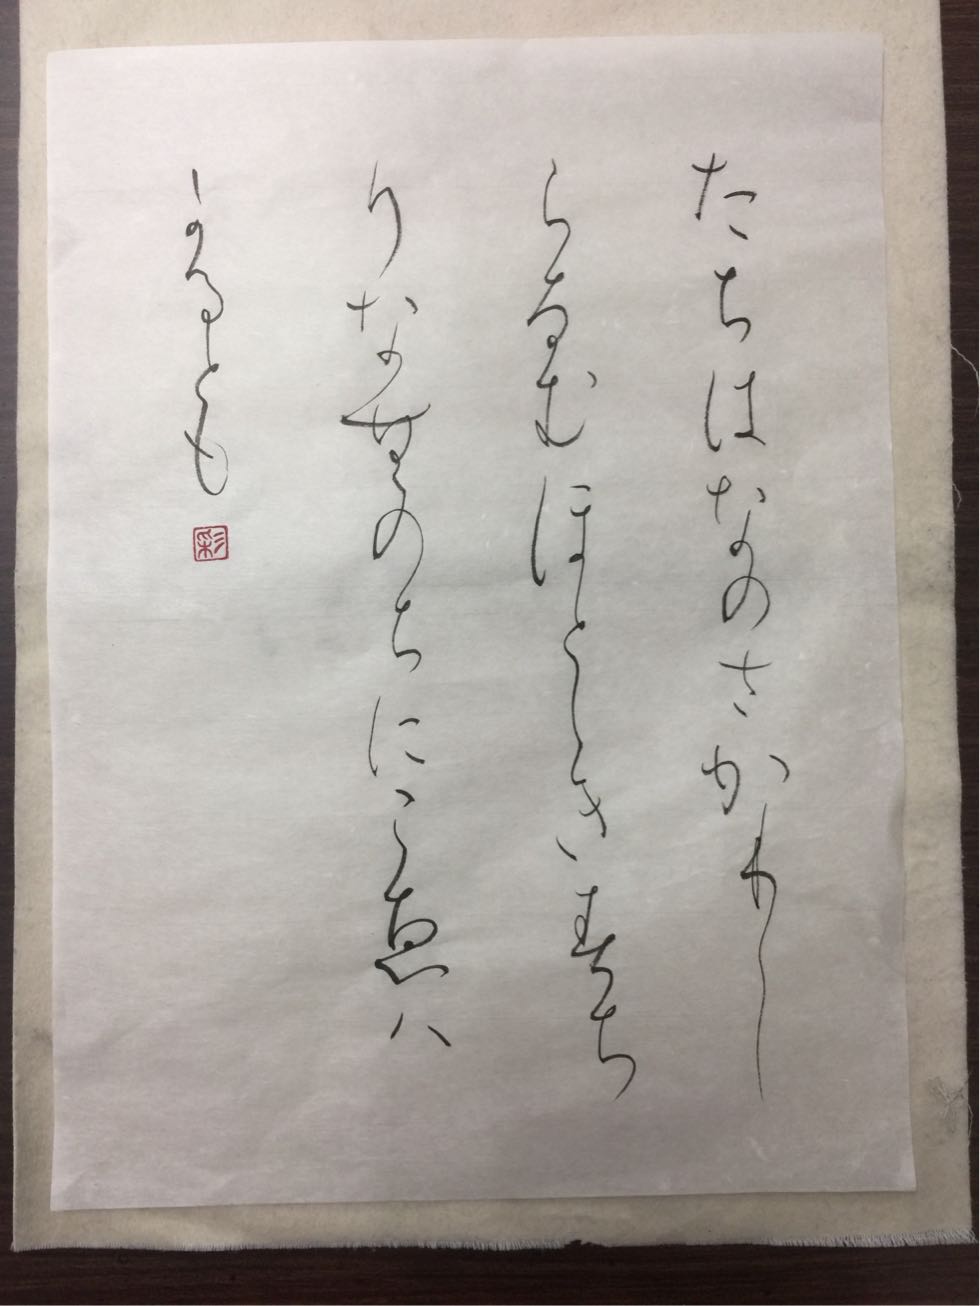 たちはなのさかりし
らなむほとゝきすち
りなむのちにこゑハ
かるとも
彩